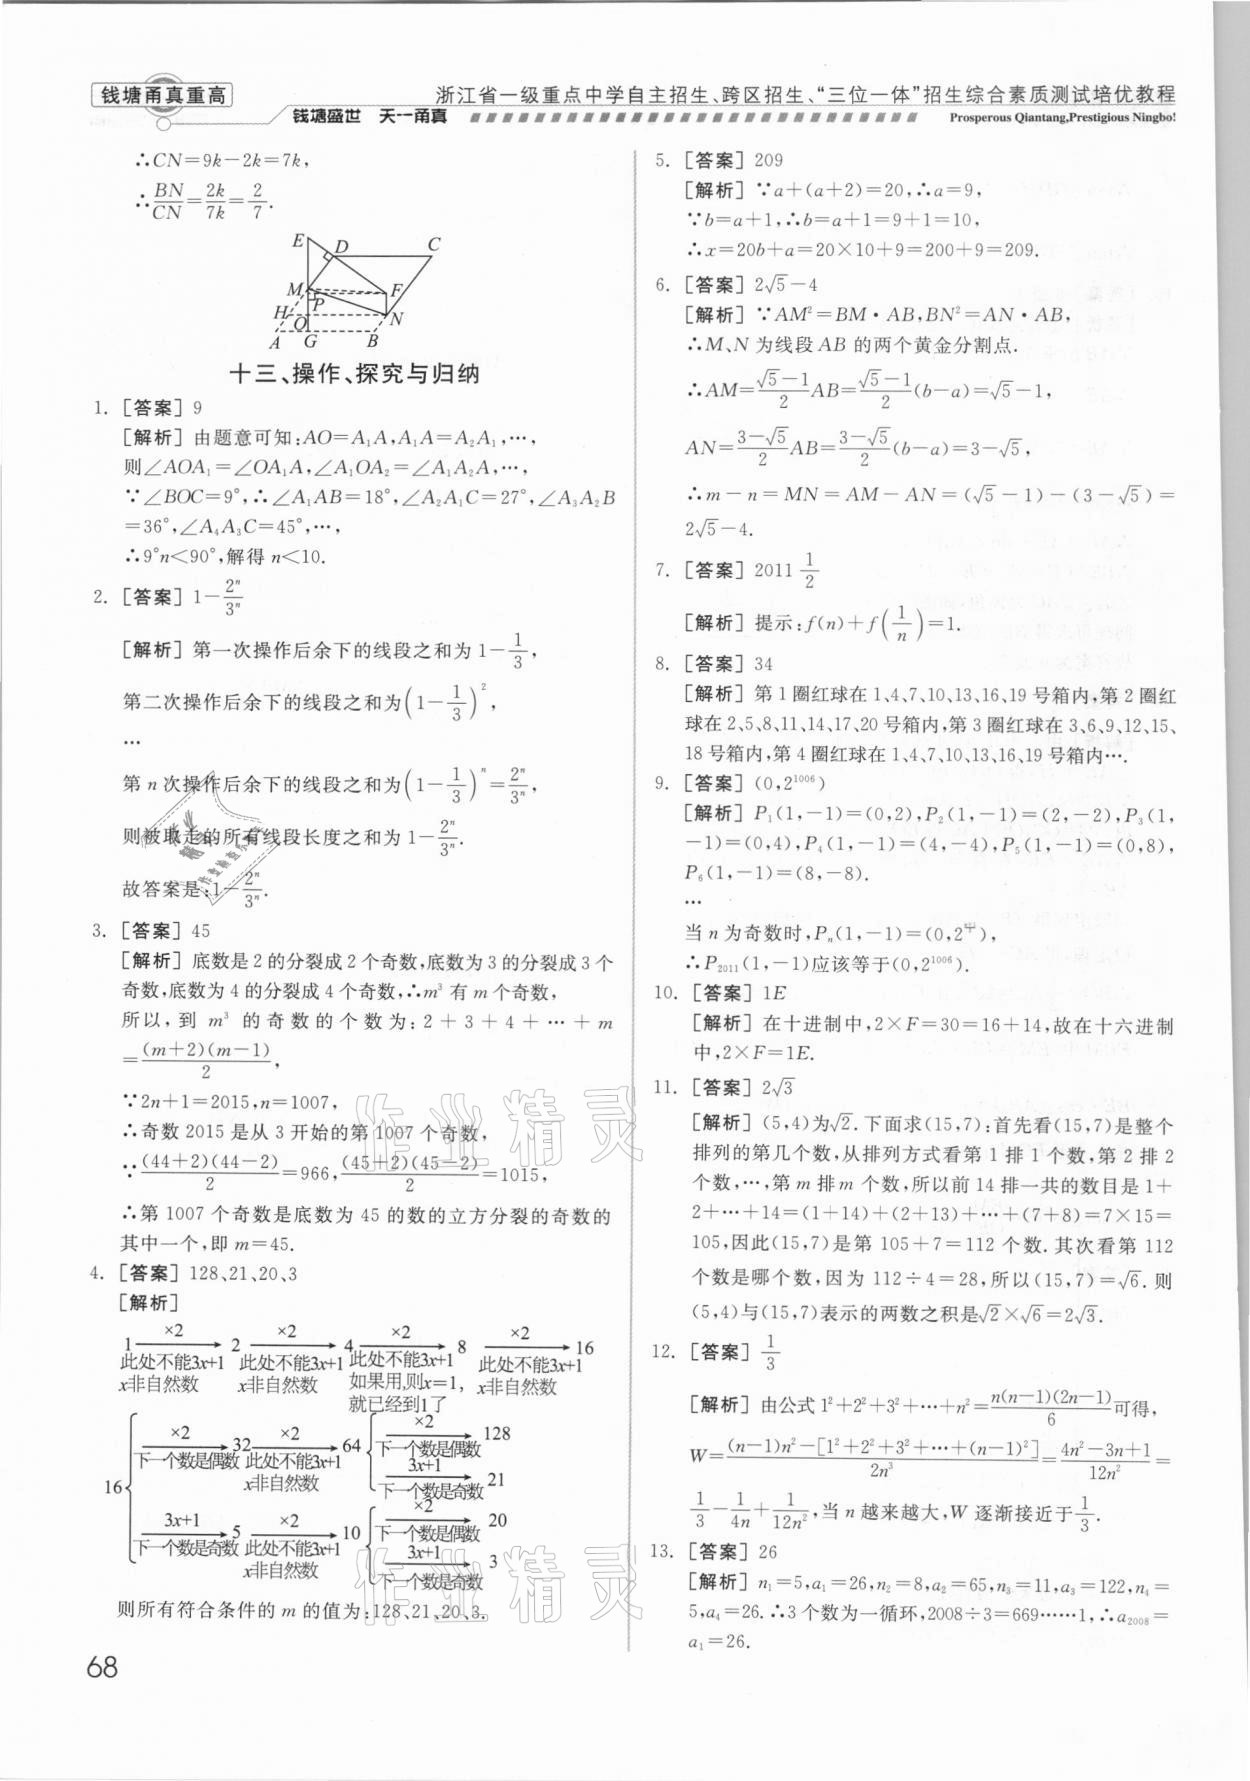 钱塘甬真重高
浙江省一级重点中学自主招生、跨区招生、“三位一体”招生综合素质测试培优教程
钱塘盛世 天一甬真
Prosperous Qiantang,Prestigious Ningbo!
∴CN=9k-2k=7k,
∴BN/CN=2k/7k=2/7.
E D C
M F
P
H N
O
A G B
十三、操作、探究与归纳
1. [答案] 9
[解析] 由题意可知:AO=A₁A,A₁A=A₂A₁,…,
则∠AOA₁=∠OA₁A,∠A₁OA₂=∠A₁A₂A,…,
∵∠BOC=9°,∴∠A₁AB=18°,∠A₂A₁C=27°,∠A₃A₂B
=36°,∠A₄A₃C=45°,…,
∴9°n<90°,解得 n<10.
2. [答案] 1-2ⁿ/3ⁿ
[解析] 第一次操作后余下的线段之和为 1-1/3,
第二次操作后余下的线段之和为(1-1/3)²,
…
第 n 次操作后余下的线段之和为(1-1/3)ⁿ=2ⁿ/3ⁿ,
则被取走的所有线段长度之和为 1-2ⁿ/3ⁿ.
故答案是:1-2ⁿ/3ⁿ.
3. [答案] 45
[解析] 底数是 2 的分裂成 2 个奇数,底数为 3 的分裂成 3 个
奇数,底数为 4 的分裂成 4 个奇数,∴m³ 有 m 个奇数,
所以,到 m³ 的奇数的个数为:2+3+4+…+m
=(m+2)(m-1)/2,
∵2n+1=2015,n=1007,
∴奇数 2015 是从 3 开始的第 1007 个奇数,
∵(44+2)(44-2)/2=966,(45+2)(45-2)/2=1015,
∴第 1007 个奇数是底数为 45 的数的立方分裂的奇数的
其中一个,即 m=45.
4. [答案] 128、21、20、3
[解析]
×2 ×2 ×2 ×2
1 2 4 8 16
此处不能3x+1 此处不能3x+1 此处不能3x+1 此处不能3x+1
x非自然数 x非自然数 如果用,则x=1, x非自然数
就已经到1了
×2 ×2 ×2
32 64 128
下一个数是偶数 此处不能3x+1 下一个数是偶数
x非自然数 3x+1
21
16 下一个数是奇数
3x+1 ×2 ×2
5 10 20
下一个数是奇数 此处不能3x+1 下一个数是偶数
x非自然数 3x+1
3
下一个数是奇数
则所有符合条件的 m 的值为:128、21、20、3.
68
5. [答案] 209
[解析] ∵a+(a+2)=20,∴a=9,
∵b=a+1,∴b=a+1=9+1=10,
∴x=20b+a=20×10+9=200+9=209.
6. [答案] 2√5-4
[解析] ∵AM²=BM·AB,BN²=AN·AB,
∴M、N 为线段 AB 的两个黄金分割点.
∴AM=(√5-1)/2 AB=(√5-1)/2 (b-a)=√5-1,
AN=(3-√5)/2 AB=(3-√5)/2 (b-a)=3-√5,
∴m-n=MN=AM-AN=(√5-1)-(3-√5)=
2√5-4.
7. [答案] 2011 1/2
[解析] 提示:f(n)+f(1/n)=1.
8. [答案] 34
[解析] 第 1 圈红球在 1、4、7、10、13、16、19 号箱内,第 2 圈红
球在 2、5、8、11、14、17、20 号箱内,第 3 圈红球在 3、6、9、12、15、
18 号箱内,第 4 圈红球在 1、4、7、10、13、16、19 号箱内….
9. [答案] (0,2¹⁰⁰⁶)
[解析] P₁(1,-1)=(0,2),P₂(1,-1)=(2,-2),P₃(1,
-1)=(0,4),P₄(1,-1)=(4,-4),P₅(1,-1)=(0,8),
P₆(1,-1)=(8,-8).
…
当 n 为奇数时,Pₙ(1,-1)=(0,2),
∴P₂₀₁₁(1,-1)应该等于(0,2¹⁰⁰⁶).
10. [答案] 1E
[解析] 在十进制中,2×F=30=16+14,故在十六进制
中,2×F=1E.
11. [答案] 2√3
[解析] (5,4)为√2.下面求(15,7):首先看(15,7)是整个
排列的第几个数,从排列方式看第 1 排 1 个数,第 2 排 2
个数,…,第 m 排 m 个数,所以前 14 排一共的数目是 1+
2+…+14=(1+14)+(2+13)+…+(7+8)=7×15=
105,因此(15,7)是第 105+7=112 个数.其次看第 112
个数是哪个数,因为 112÷4=28,所以(15,7)=√6.则
(5,4)与(15,7)表示的两数之积是√2×√6=2√3.
12. [答案] 1/3
[解析] 由公式 1²+2²+3²+…+n²=n(n-1)(2n-1)/6 可得,
W=(n-1)n²-[1²+2²+3²+…+(n-1)²]/2n³=4n²-3n+1/12n²=
1/3-1/4n+1/12n²,当 n 越来越大,W 逐渐接近于1/3.
13. [答案] 26
[解析] n₁=5,a₁=26,n₂=8,a₂=65,n₃=11,a₃=122,n₄=
5,a₄=26.∴3 个数为一循环,2008÷3=669……1,∴a₂₀₀₈=
a₁=26.
作业精灵
作业精灵